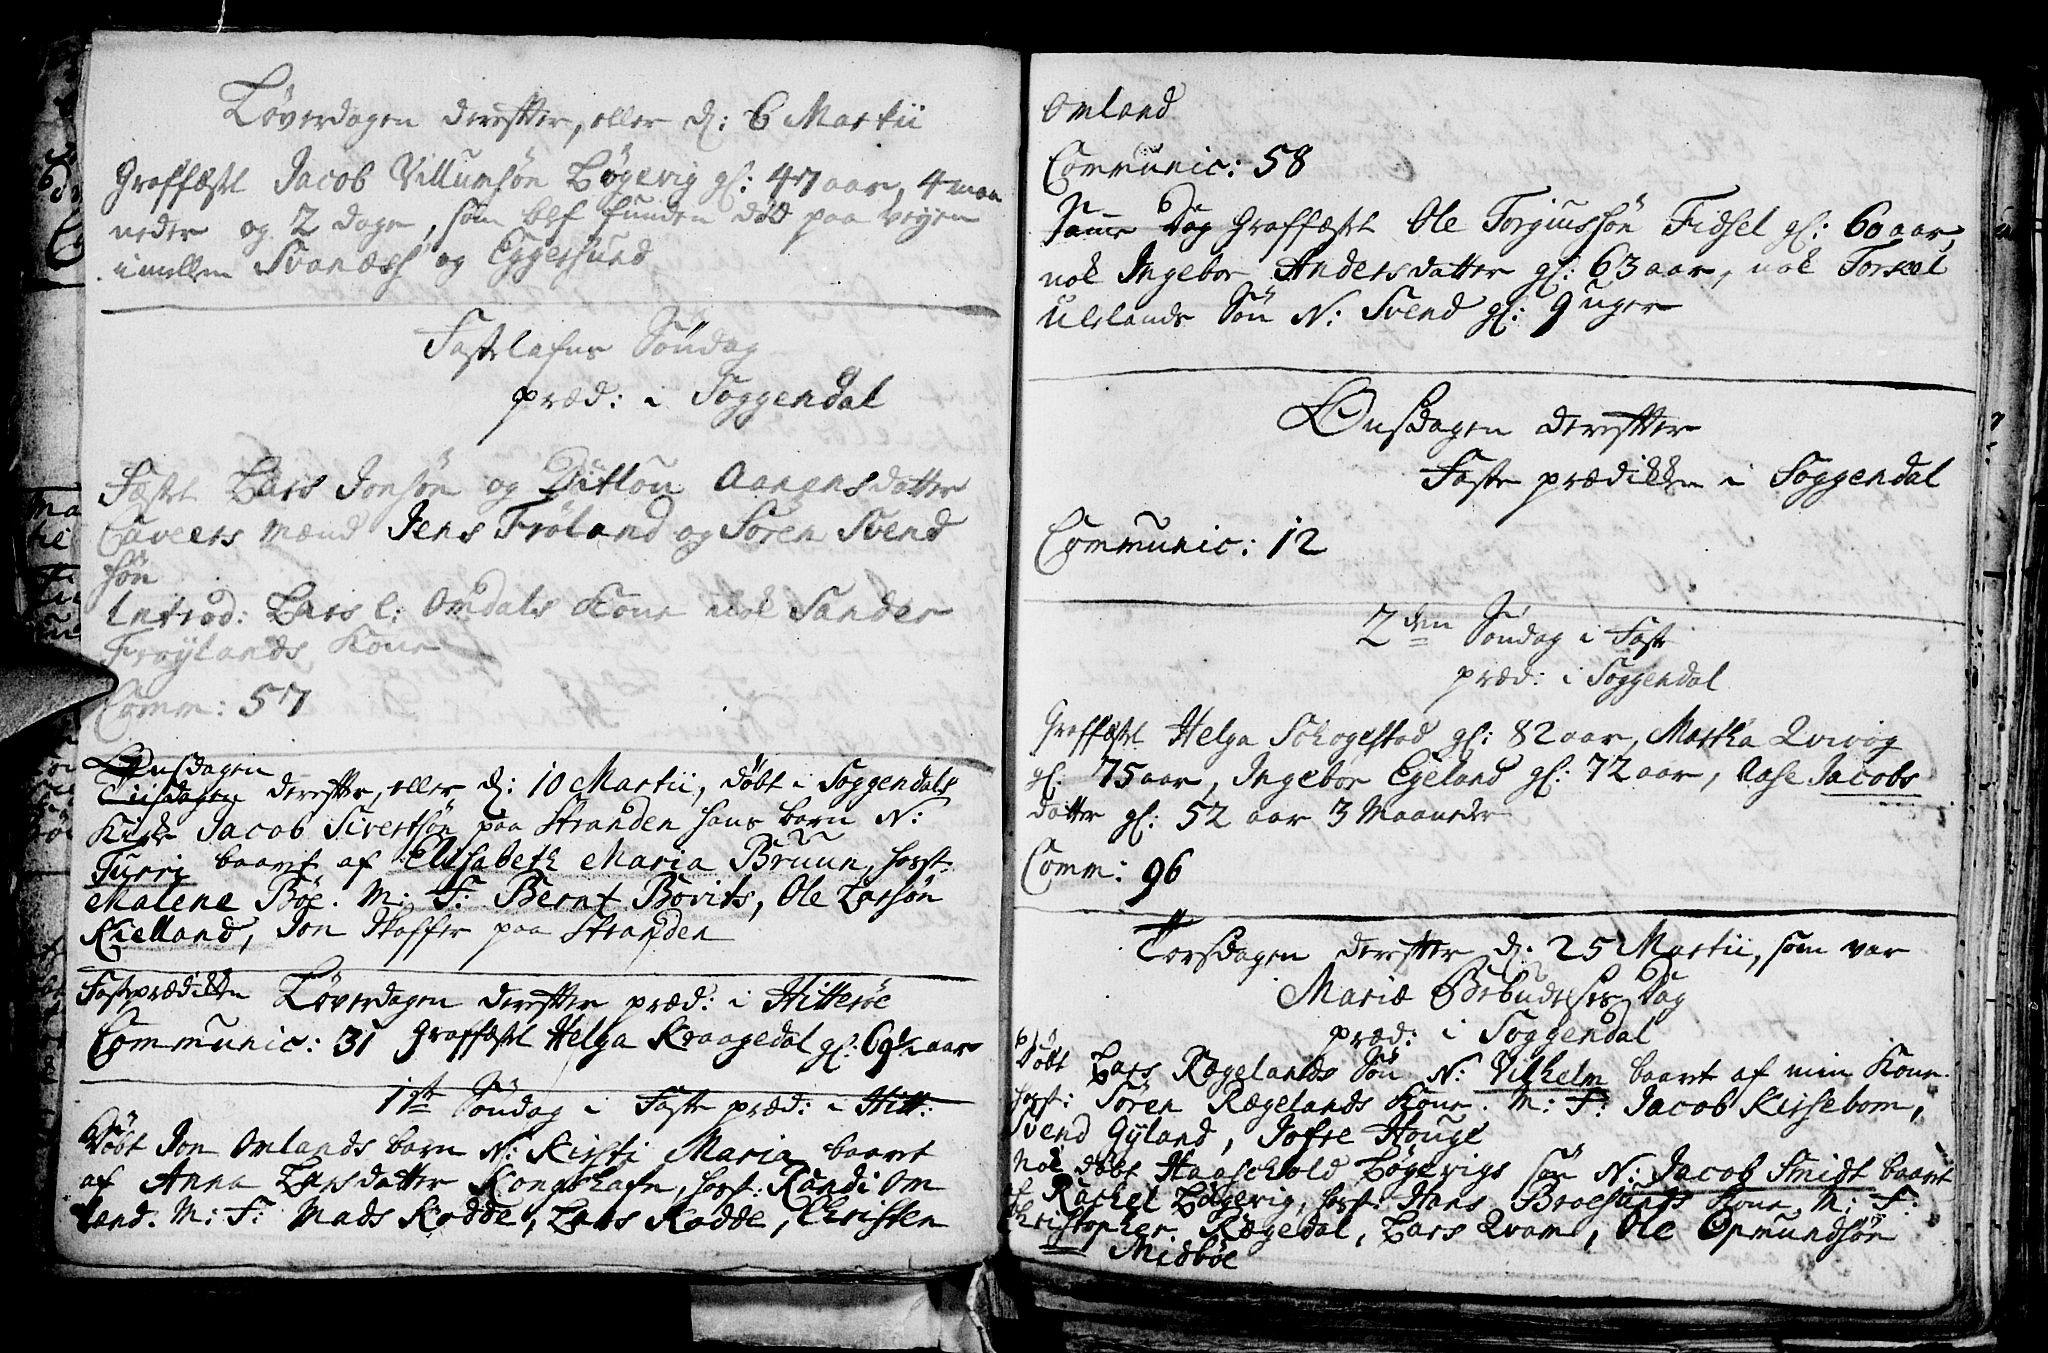 Løverdagen derefter, eller d: 6 Martii
Graffæstet Jacob Villumsøn Løgevig gl: 47 aar, 4 maa
neder og 2 dage, som blef funden død paa Veyen
imellem Svanæss og Eggersund
Fastelafns Søndag
præd: i Soggendal
Fæstet Lars Jonsøn og Ditlou Aanensdatter
Caveers mænd Jens Frøland og Søren Svend
søn
Introd: Lars l: Omdals Kone nok Sander
Frøylands Kone
Comm: 57
Onsdagen
Tiisdagen derefter, eller d: 10 Martii, døbt i Soggendals
Kirke Jacob Sivertsøn paa Stranden hans barn N:
Turri baaret af Elisabeth Maria Bruun, hosst:
Malene Bøe. M: F: Bernt Bovits, Ole Larsøn
Kielland, Jon Staffer paa Stranden
Fasteprædikken Løverdagen derefter præd: i Hitterøe
Communic: 31 Graffæstet Helga Kraagedal gl: 69½ aar
1ste Søndag i Faste præd: i Hitt:
Døbt Jon Omlands barn N: Kirsti Maria baaret
af Anna Larsdatter Kongshafn, hosst: Randi Om
land. M: F: Mads Rodde, Lars Rodde, Christen
Omland
Communic: 58
Samme Dag Graffæstet Ole Torgiussøn Fidsel gl: 60 aar,
nok Ingebor Andersdatter gl: 63 aar, nok Torkel
Ulelands Søn N: Svend gl: 9 uger
Onsdagen derefter
Faste prædikken i Soggendal
Communic: 12
2den Søndag i Faste
præd: i Soggendal
Graffæstet Helga Schogestad gl: 82 aar, Martha Qvivøg
gl: 75 aar, Ingebor Egeland gl: 72 aar, Aase Jacobs
datter gl: 52 aar 3 Maaneder
Comm: 96
Torsdagen derefter d: 25 Martii, som var
Mariæ Bebudelses Dag
præd: i Soggendal
Døbt Lars Rægelands Søn N: Vilhelm baaret af min Kone
hosst: Søren Rægelands Kone. M: F: Jacob Kirsebom,
Svend Gyland, Jofre Houge
Nok døbt Haagschold Løgevigs søn N: Jacob Smidt baaret
af Rachel Løgevig, hosst: Hans Broesunds Kone, M: F:
Christopher Rægedal, Lars Qvam, Ole Opmundsøn
Midbøe